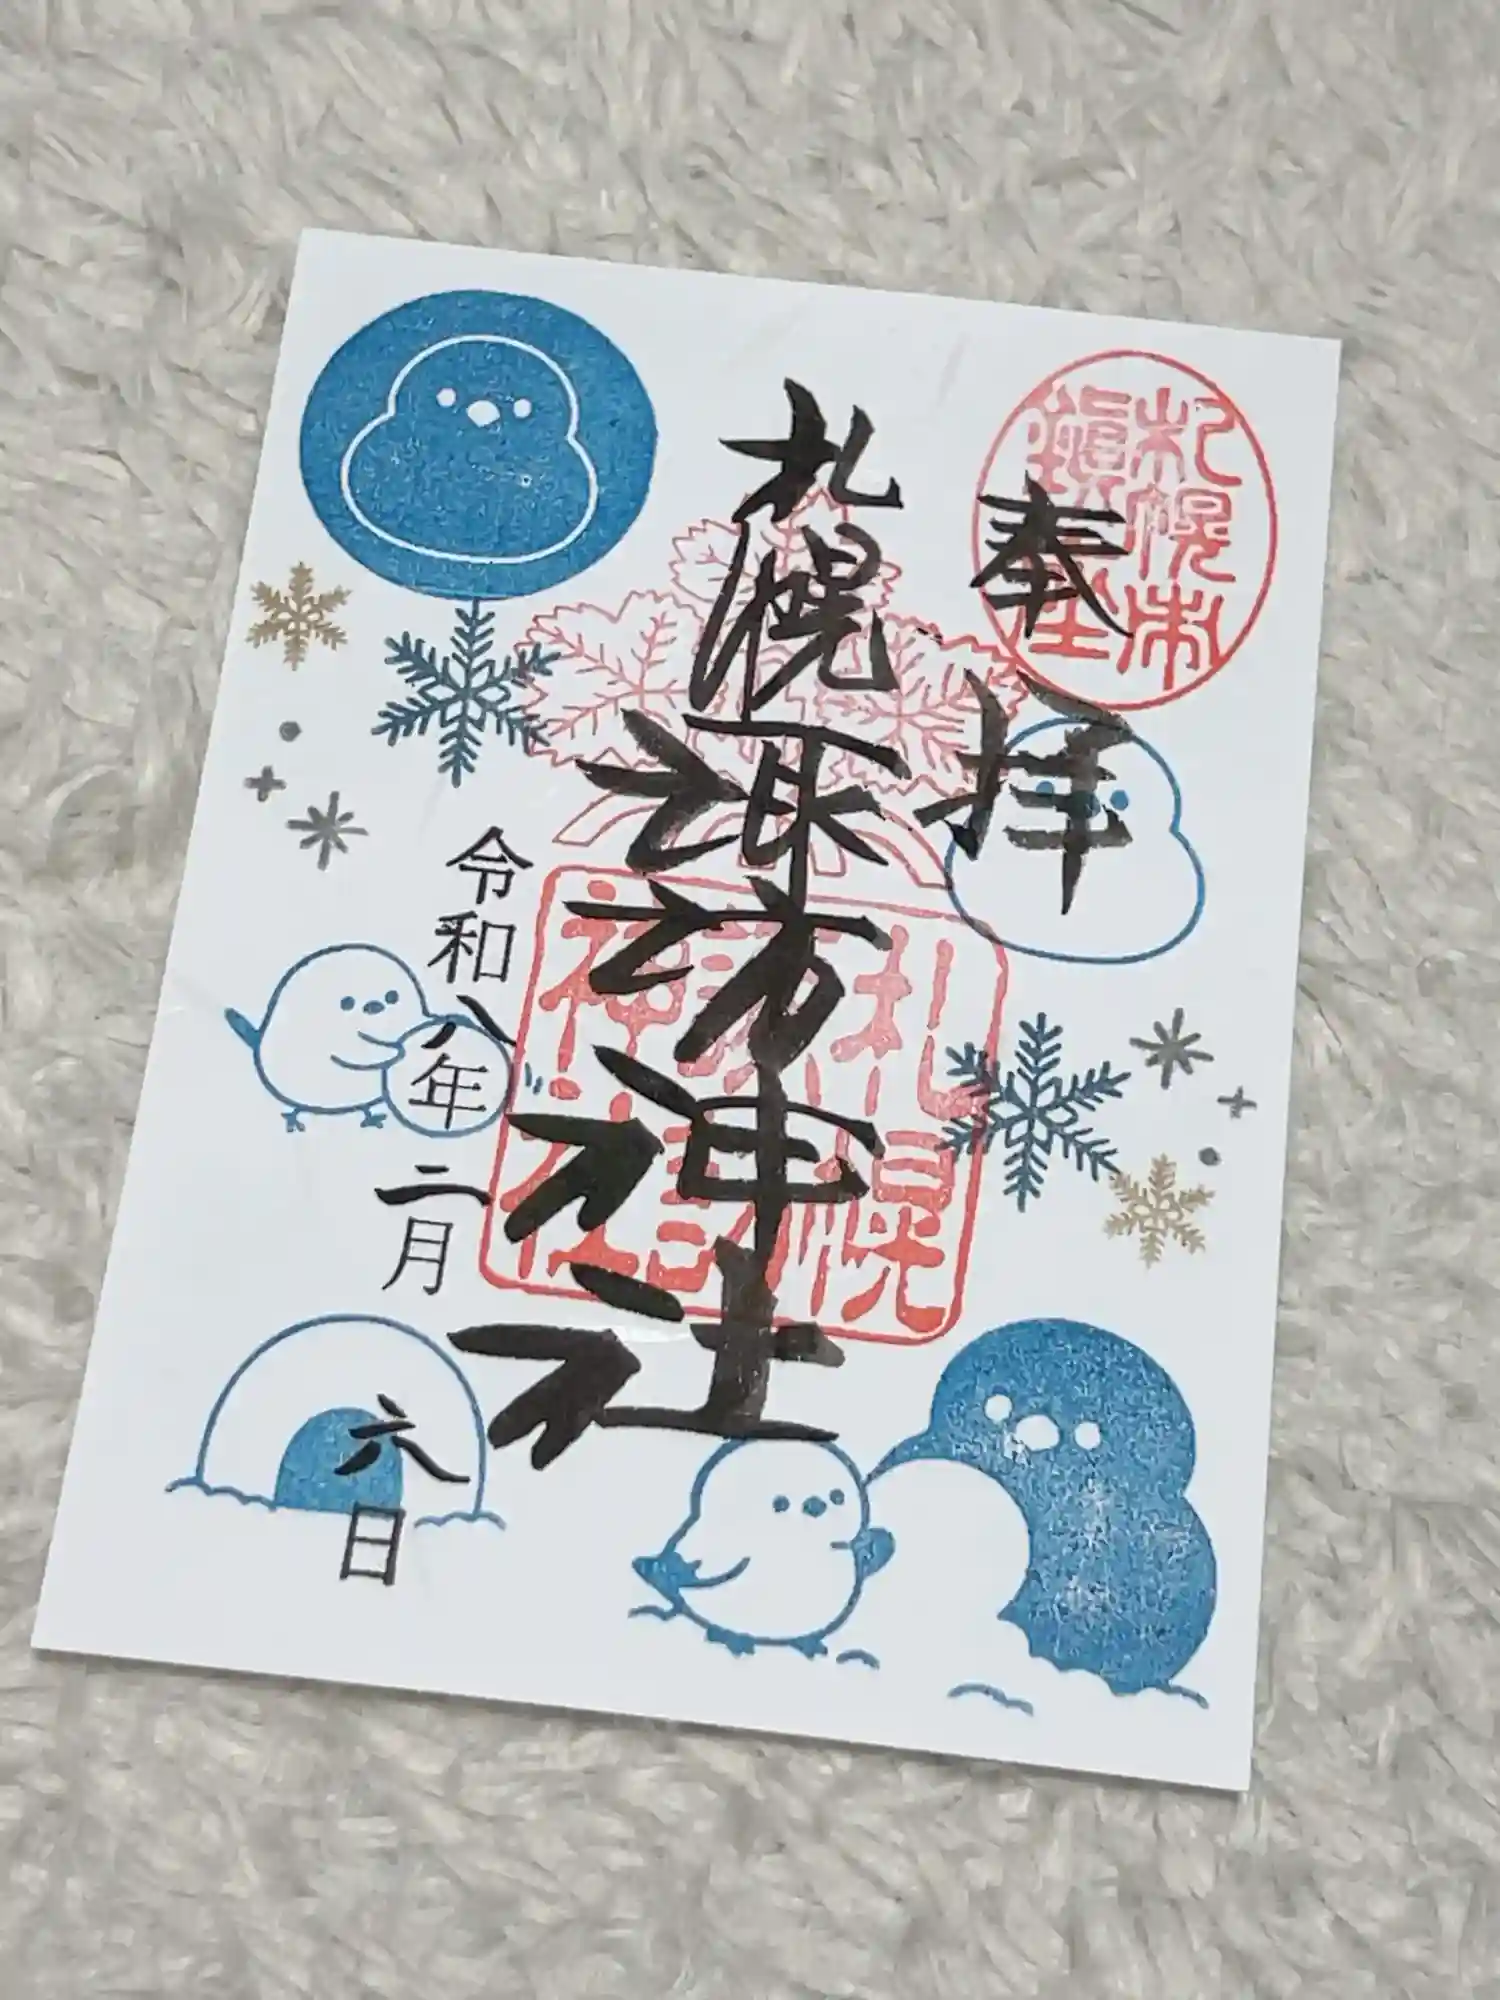 奉拝
札幌市
鎮座
札幌諏訪神社
札幌
諏訪
神社
令和八年二月六日